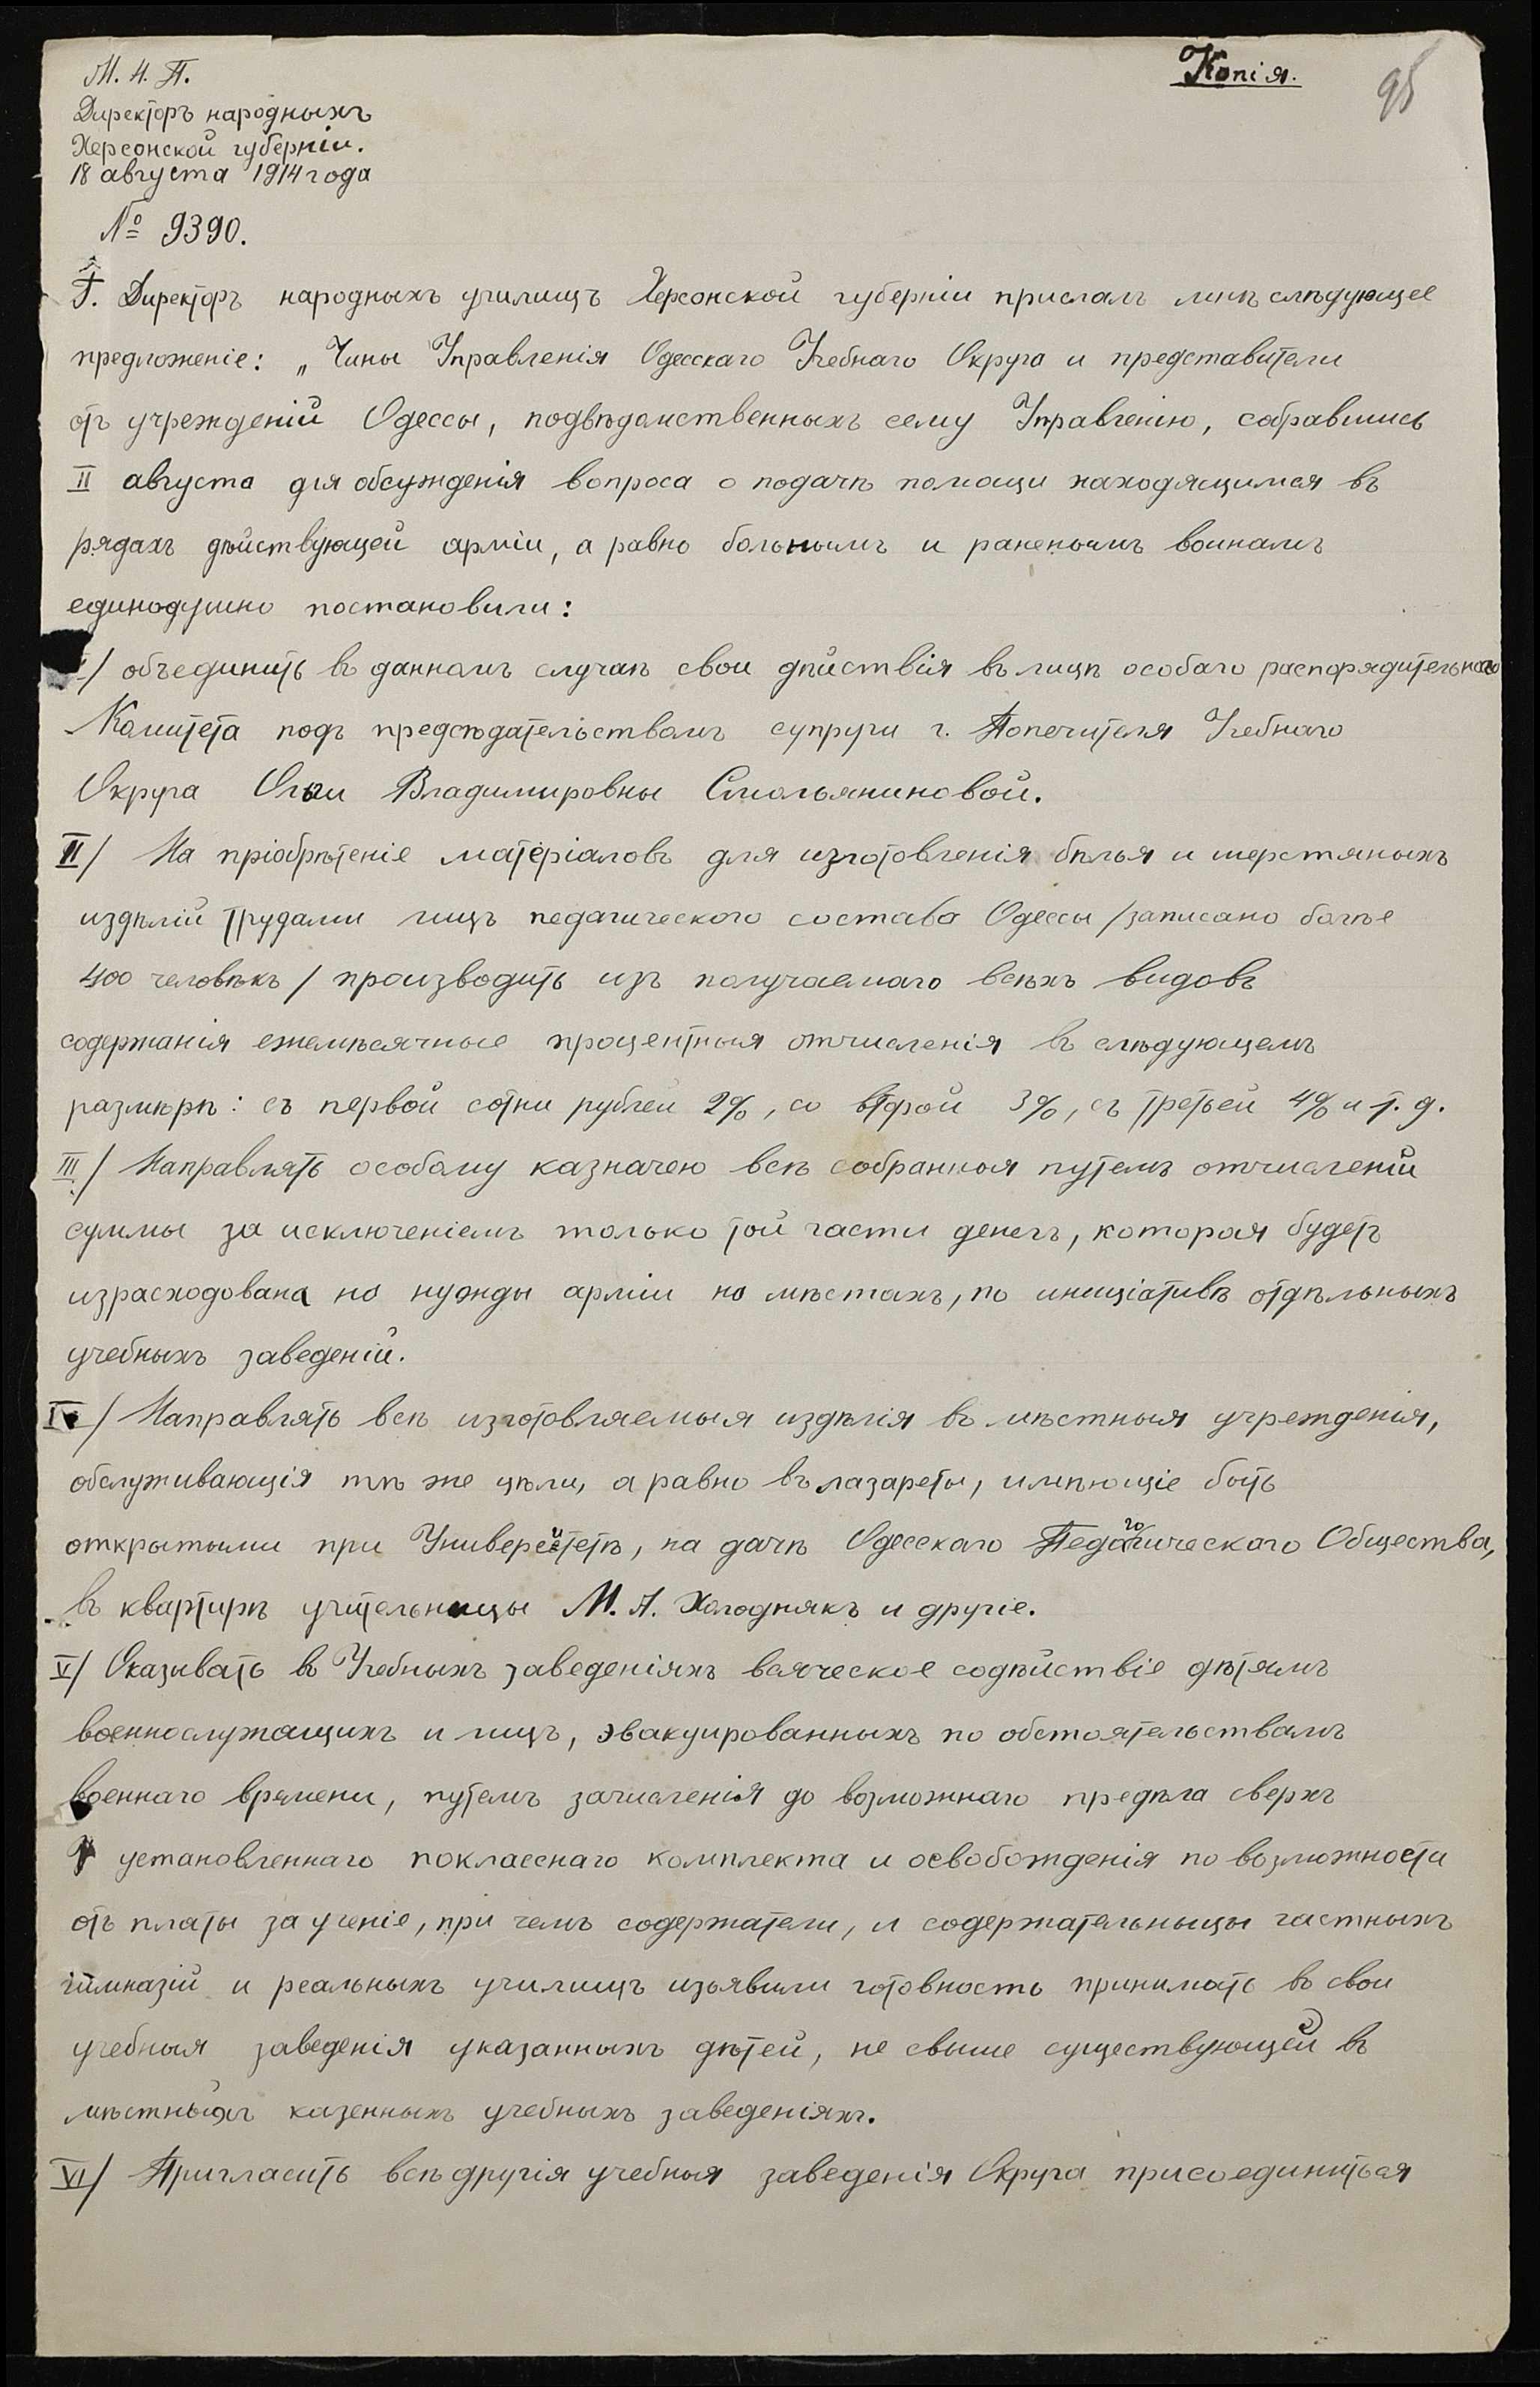 Копія.
95
М. Н. П.
Директоръ народныхъ
Херсонской губерніи.
18 августа 1914 года
№ 9390.
Г. Директоръ народныхъ училищъ Херсонской губерніи прислалъ мнѣ слѣдующее
предложеніе: „Чины Управленія Одесскаго Учебнаго Округа и представители
отъ учрежденій Одессы, подвѣдомственныхъ сему Управленію, собравшись
II августа для обсужденія вопроса о подачѣ помощи находящимся въ
рядахъ дѣйствующей арміи, а равно больнымъ и раненымъ воинамъ
единодушно постановили:
I/ объединить въ данномъ случаѣ свои дѣйствія въ лицѣ особаго распорядительнаго
Комитета подъ предсѣдательствомъ супруги г. Попечителя Учебнаго
Округа Ольги Владимировны Смольяниновой.
II/ На пріобрѣтеніе матеріаловъ для изготовленія бѣлья и шерстяныхъ
издѣлій трудами лицъ педагическаго состава Одессы /записано болѣе
400 человѣкъ/ производить изъ получаемаго всѣхъ видовъ
содержанія ежемѣсячные процентныя отчисленія въ слѣдующемъ
размѣрѣ: съ первой сотни рублей 2%, со второй 3%, съ третьей 4% и т. д.
III/ Направлять особому казначею всѣ собранныя путемъ отчисленій
суммы за исключеніемъ только той части денегъ, которая будетъ
израсходована на нужды арміи на мѣстахъ, по иниціативѣ отдѣльныхъ
учебныхъ заведеній.
IV/ Направлять всѣ изготовляемыя издѣлія въ мѣстныя учрежденія,
обслуживающія тѣ же цѣли, а равно въ лазареты, имѣющіе быть
открытыми при Университетѣ, на дачѣ Одесскаго Педагогическаго Общества,
въ квартирѣ учительницы М. А. Холоднякъ и другіе.
V/ Оказывать въ Учебныхъ заведеніяхъ всяческое содѣйствіе дѣтямъ
военнослужащихъ и лицъ, эвакуированныхъ по обстоятельствамъ
военнаго времени, путемъ зачисленія до возможнаго предѣла сверхъ
установленнаго покласснаго комплекта и освобожденія по возможности
отъ платы за ученіе, при чемъ содержатели, и содержательницы частныхъ
гимназій и реальныхъ училищъ изъявили готовность принимать въ свои
учебныя заведенія указанныхъ дѣтей, не свыше существующей въ
мѣстныхъ казенныхъ учебныхъ заведеніяхъ.
VI/ Пригласить всѣ другія учебныя заведенія Округа присоединиться